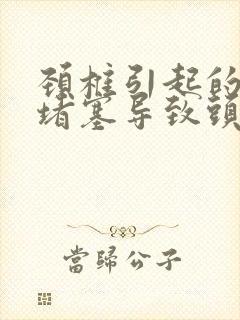 颈椎引起的
堵塞导致頭
當歸公子